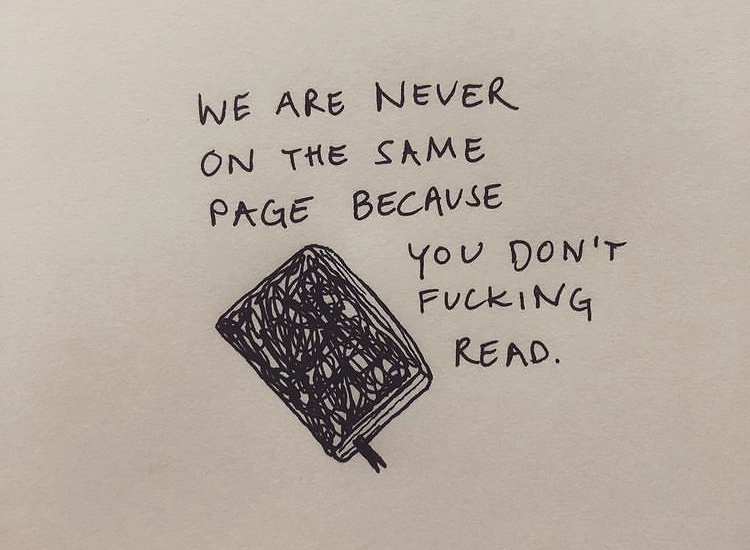 WE ARE NEVER
ON THE SAME
PAGE BECAUSE
YOU DON'T
FUCKING
READ.